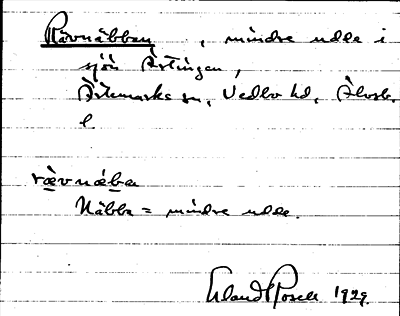 Rävnäbben, mindre udde i
sjön Ärtingen,
Ärtemarks sn, Vedbo hd, Älvsb.
l
rævnæba
Näbba = mindre udde.
Erland Rosell 1929.